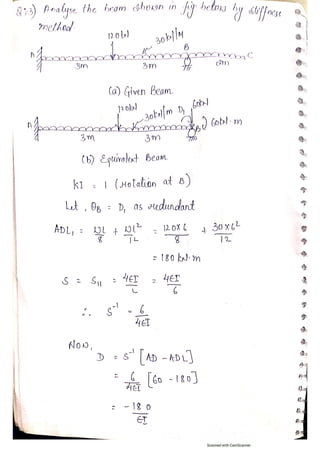 Q:3) Analyse the beam shown in fig below by stiffness
method
120kN
30kN/M
A
B
C
3m
3m
(a) Given Beam
120kN
60kN
30kN/m
D1
60kN·m
A
B
3m
3m
(b) Equivalent Beam
KI = 1 (rotation at B)
Let, θB = D1 as redundant
ADL1 = WL/8 + WL²/12 = 120×6/8 + 30×6²/12
= 180 kN·m
S = S11 = 4EI/L = 4EI/6
∴ S⁻¹ = 6/4EI
Now,
D = S⁻¹ [AD - ADL]
= 6/4EI [60 - 180]
= -180/EI
Scanned with CamScanner